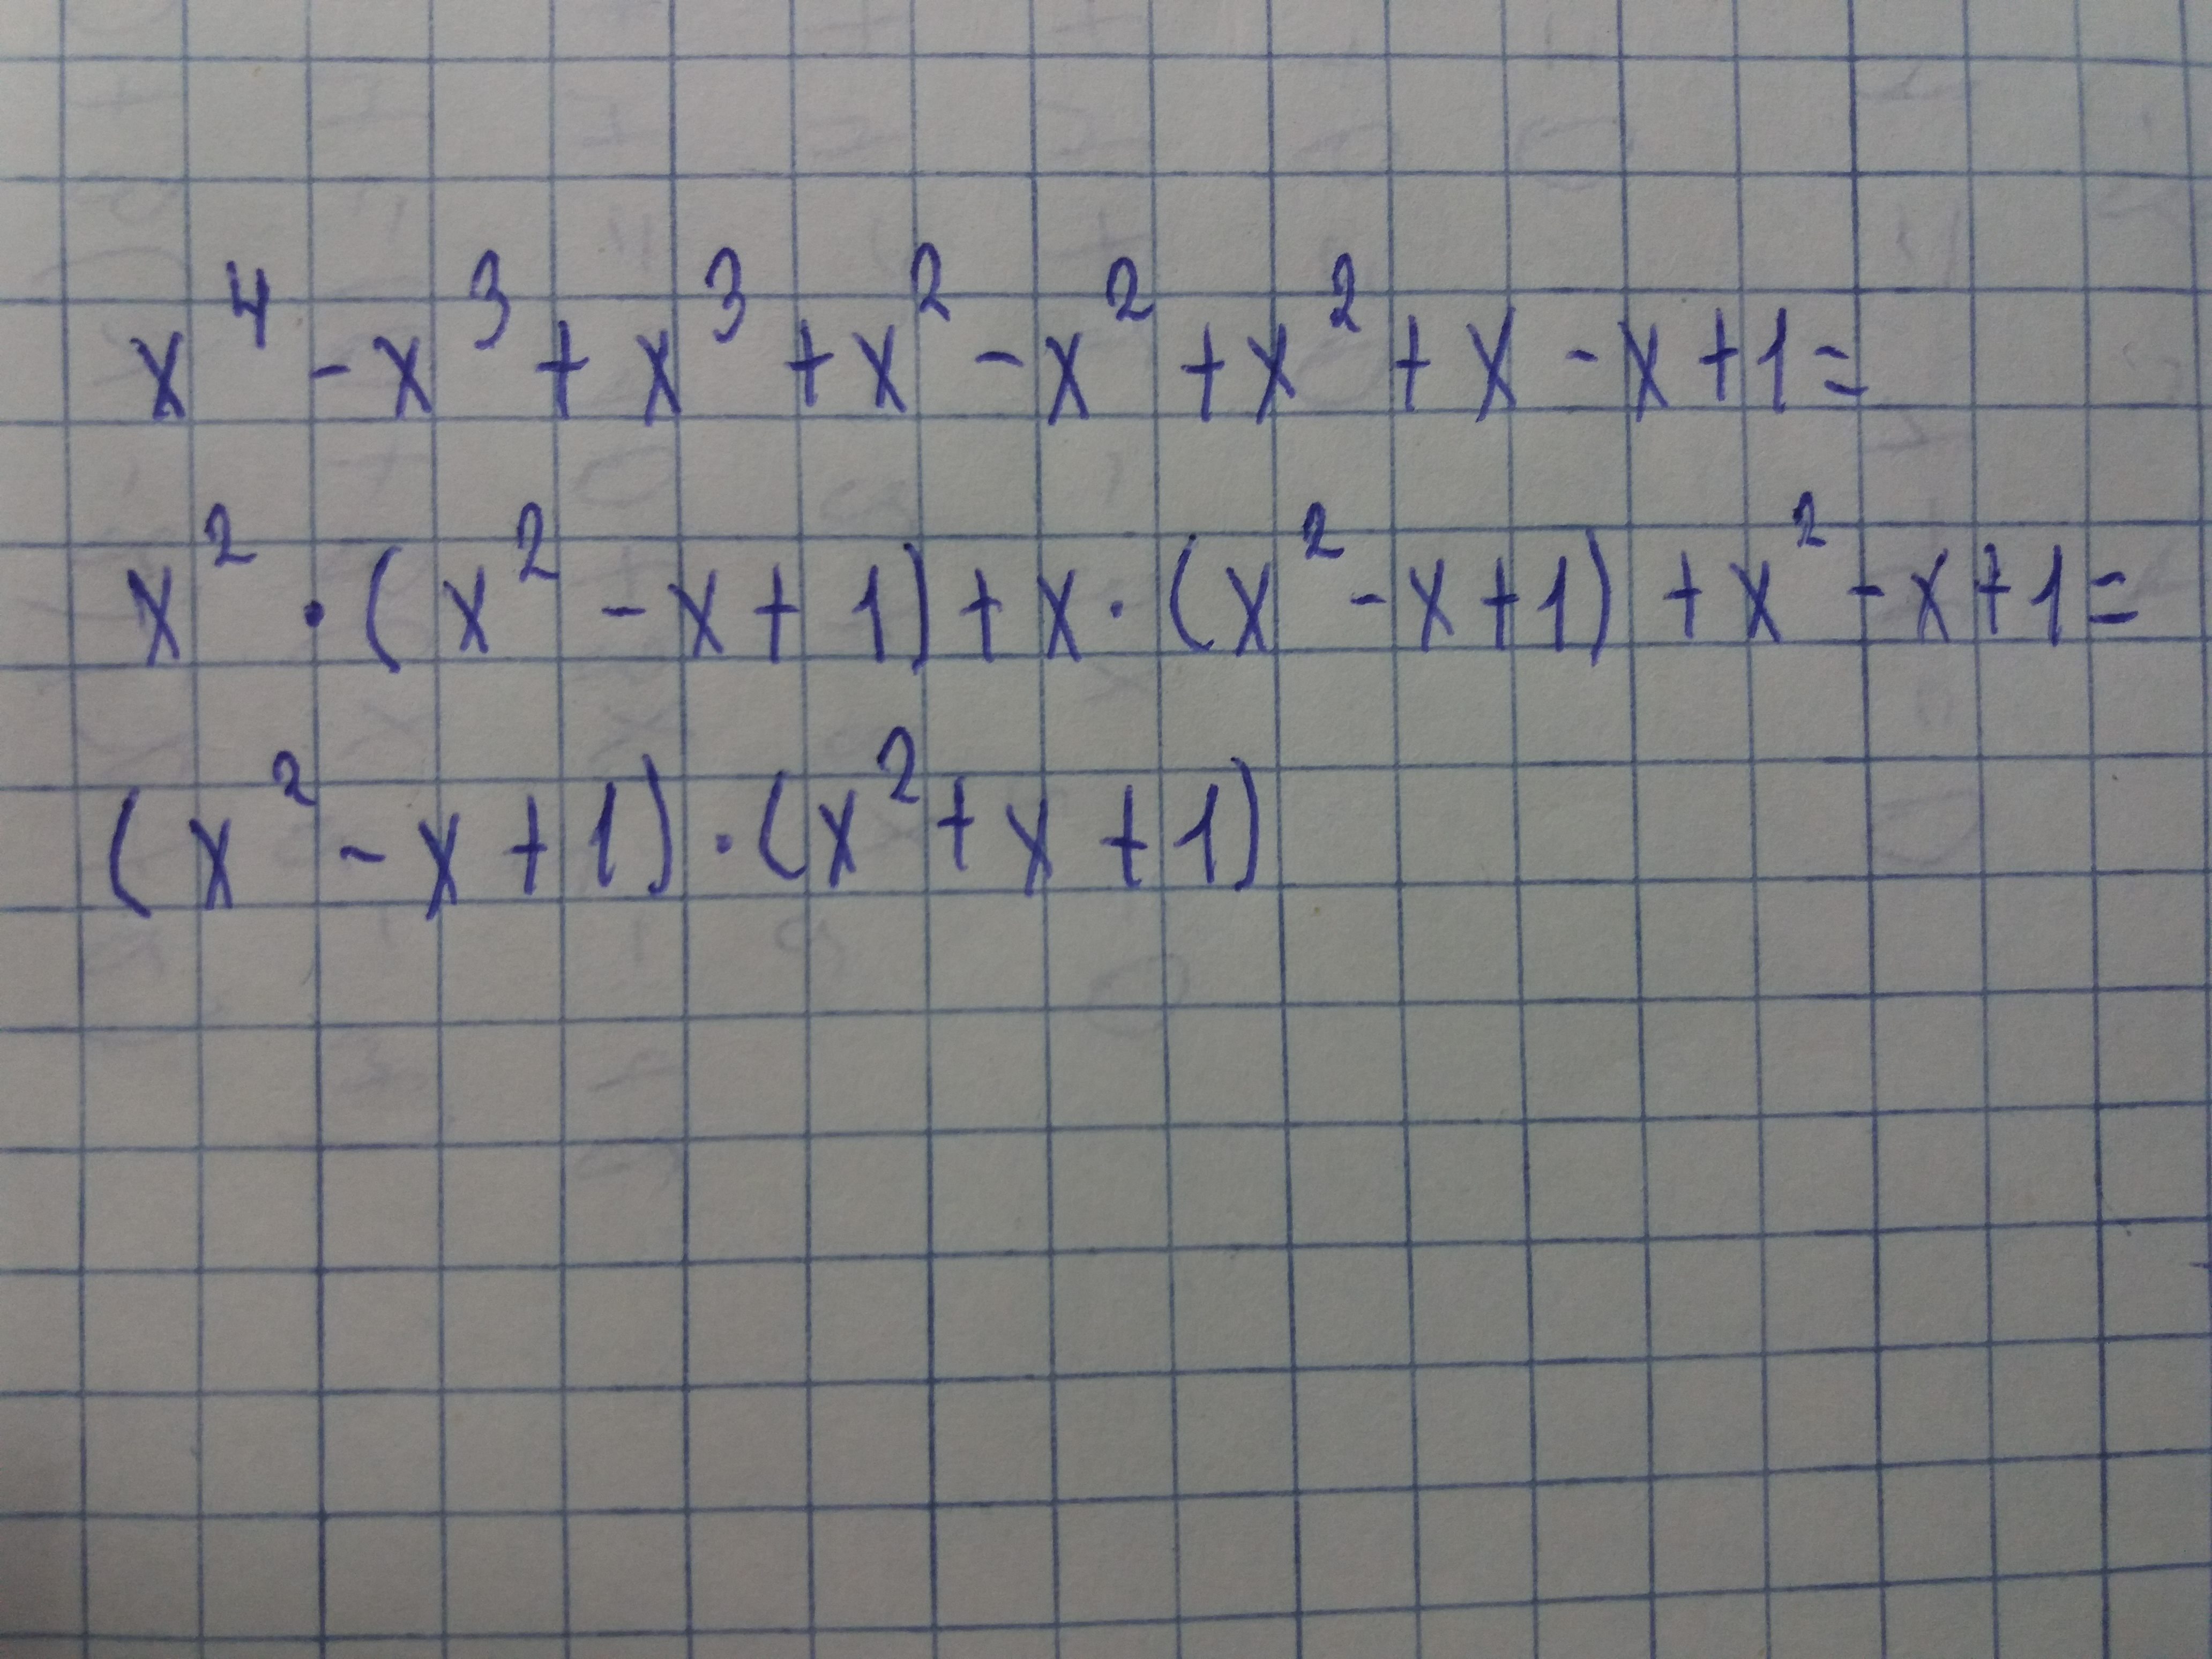 x⁴ - x³ + x³ + x² - x² + x² + x - x + 1 =
x² · (x² - x + 1) + x · (x² - x + 1) + x² - x + 1 =
(x² - x + 1) · (x² + x + 1)